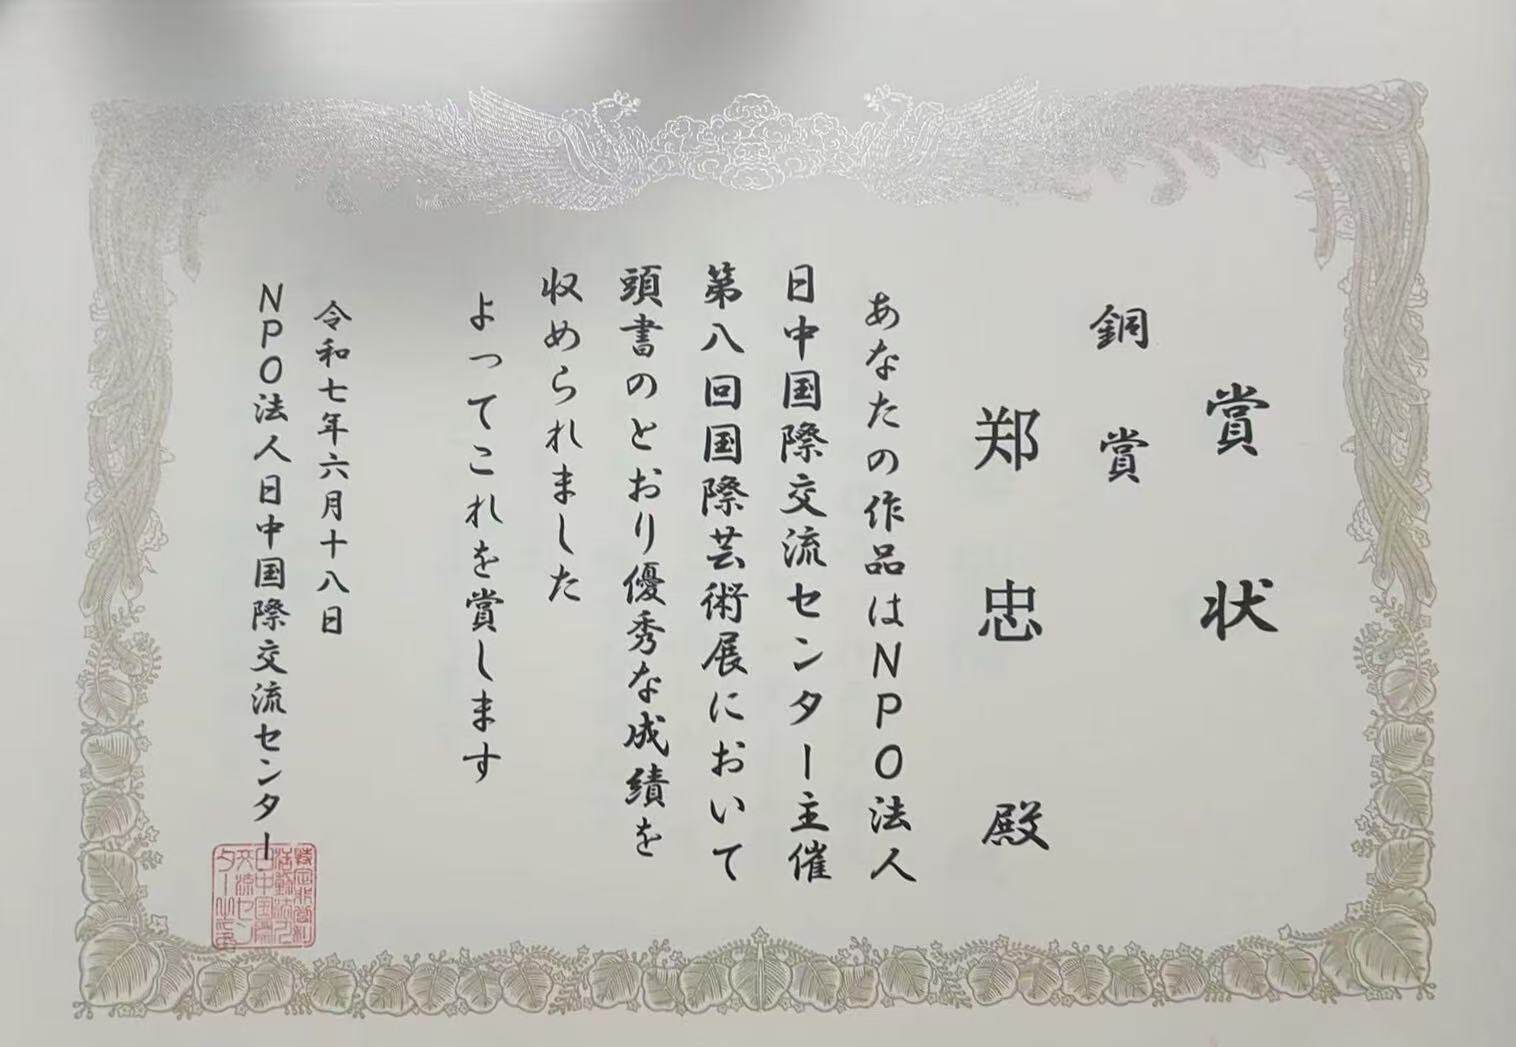 賞状
銅賞
郑忠殿
あなたの作品はNPO法人
日中国際交流センター主催
第八回国際芸術展において
頭書のとおり優秀な成績を
収められました
よってこれを賞します
令和七年六月十八日
NPO法人日中国際交流センター
特定非営利
活動法人
日中国際
交流セン
ター之印